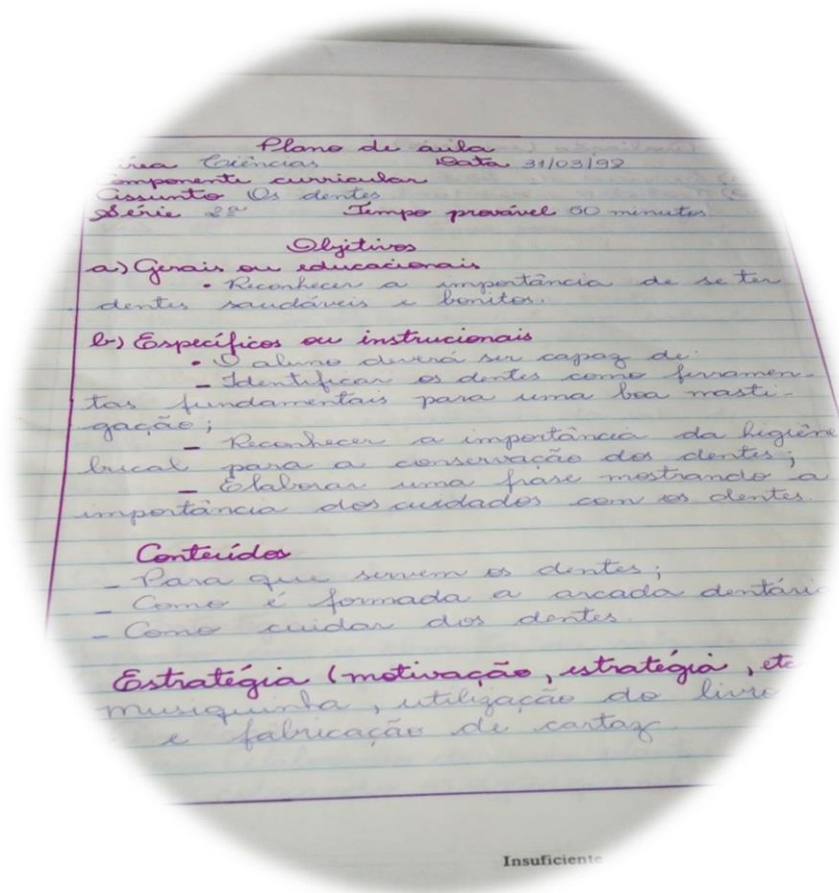 Plano de aula
Área Ciências Data 31/03/92
Componente curricular
Assunto Os dentes
Série 2ª Tempo provável 50 minutos
Objetivos
a) Gerais ou educacionais
• Reconhecer a importância de se ter
dentes saudáveis e bonitos.
b) Específicos ou instrucionais
• O aluno deverá ser capaz de:
- Identificar os dentes como ferramen-
tas fundamentais para uma boa masti-
gação;
- Reconhecer a importância da higiene
bucal para a conservação dos dentes;
- Elaborar uma frase mostrando a
importância dos cuidados com os dentes.
Conteúdos
- Para que servem os dentes;
- Como é formada a arcada dentári
- Como cuidar dos dentes.
Estratégia (motivação, estratégia, etc
musiquinha, utilização do livro
e fabricação de cartaz
Insuficiente